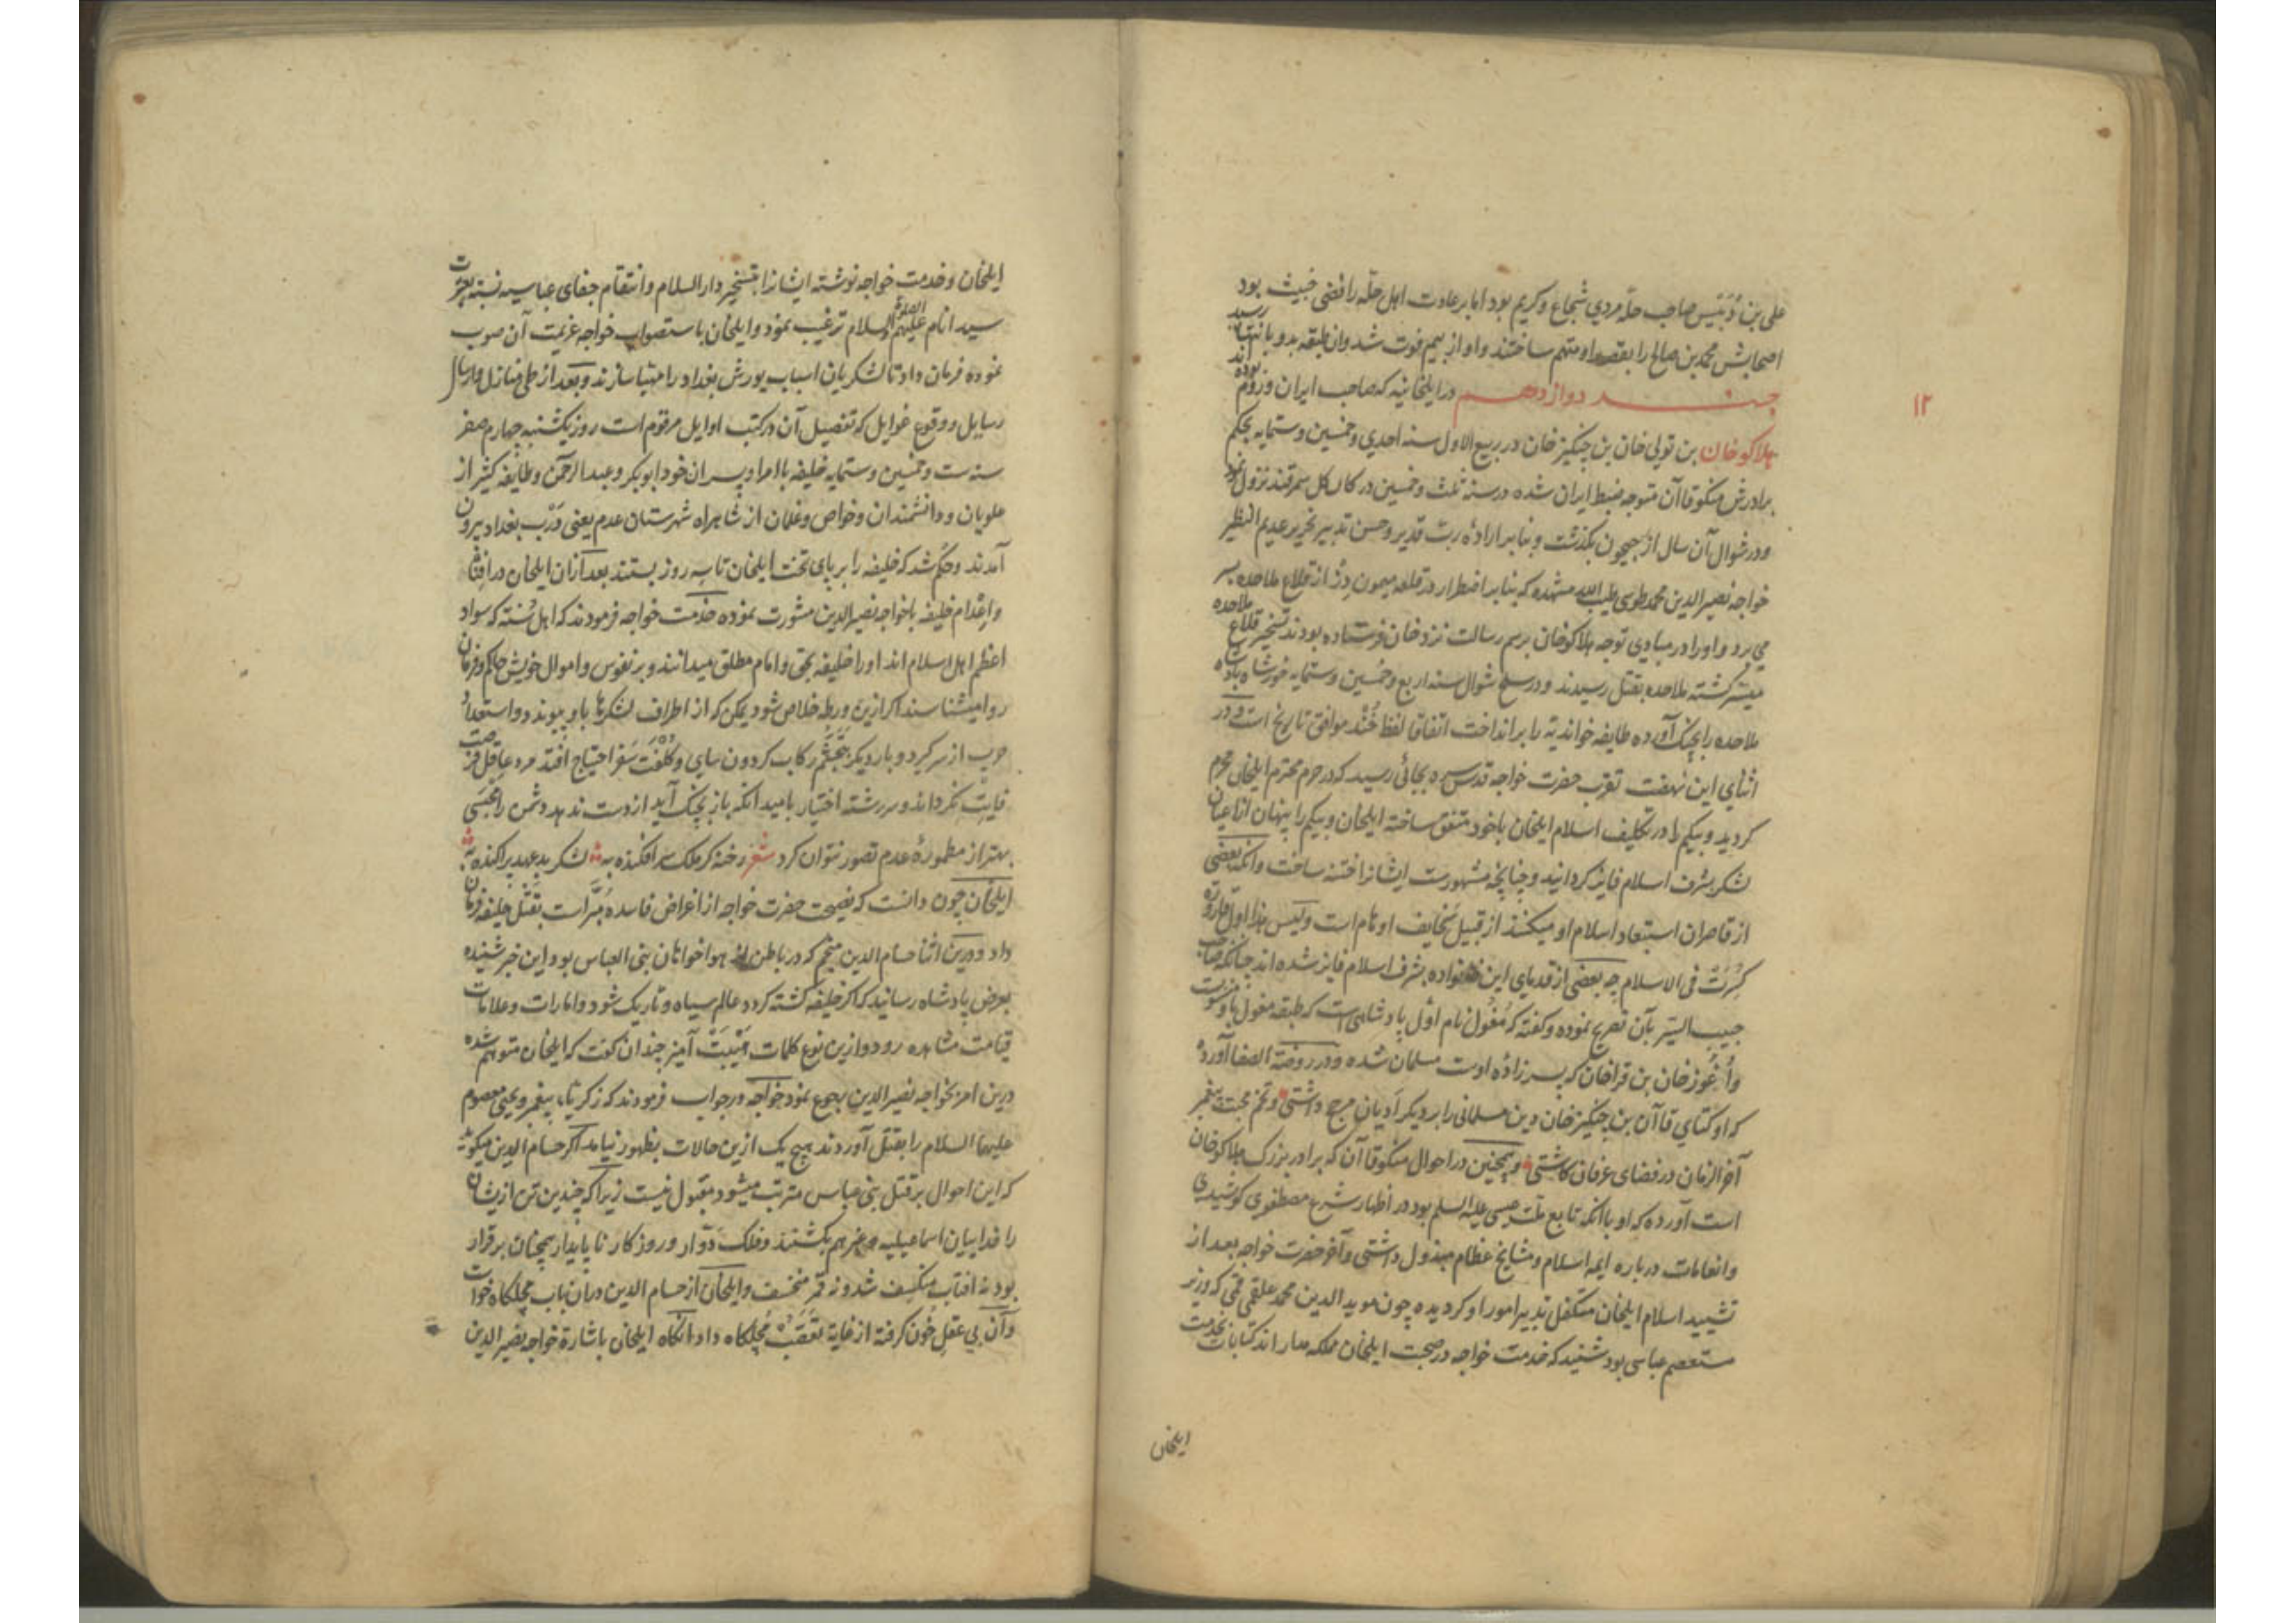 علی بن دُبَیس صاحب حلّه مردی شجاع و کریم بود اما بر عادت اهل حلّه رافضی خبیث بود
اصحابش محمد بن صالح را بقصد او متهم ساختند و او از بیم فوت شد وان طبقه بدو بانتها رسید
جند دوازدهم در ایلخانیه که صاحب ایران و روم بوده اند
۱۲
هلاکو خان بن تولی خان بن چنگیز خان در ربیع الاول سنه احدی و خمسین و ستمایه بحکم
برادرش منکوقاآن متوجه ضبط ایران شده در سنه ثلث و خمسین در کان کل سمرقند نزول نمود
و در شوال آن سال از جیحون بگذشت و بنابر ارادۀ ربّ قدیر و حسن تدبیر نحریر عدیم النظیر
خواجه نصیر الدین محمد طوسی طیب الله مشهده که بنابر اضطرار در قلعه میمون دژ از قلاع ملاحده بسر
می برد و او را در مبادی توجه هلاکوخان برسم رسالت نزد خان فرستاده بودند تسخیر قلاع ملاحده
میسّر گشته ملاحده بقتل رسیدند و در سلخ شوال سنه اربع و خمسین و ستمایه خورشاه پادشاه
ملاحده را بچنگ آورده طایفه خواندیّه را برانداخت اتفاقا لفظ خُنْد موافق تاریخ است و در
اثنای این نهضت تقرب حضرت خواجه قدس سره بجائی رسید که در حرم محترم ایلخان محرم
گردید و بیگم را در تکلیف اسلام ایلخان با خود متفق ساخته ایلخان و بیگم را پنهان از اعیان
لشکر بشرف اسلام فایز گردانید و چنانچه مشهورست ایشانرا ختنه ساخت و آنکه بعضی
از قاصران استبعاد اسلام او میکنند از قبیل سخایف اوهام است ولیس هذا اول قارورة
کُسِرَتْ فی الاسلام چه بعضی از قدمای این خانواده بشرف اسلام فایز شده اند چنانکه صاحب
حبیب السیر بآن تصریح نموده و گفته که مُغُول نام اوّل پادشاهی است که طبقه مغول باو منسوبست
و اُغُوز خان بن قراخان که پسر زاده اوست مسلمان شده و در روضة الصفا آورده
که اوکتای قاآن بن چنگیز خان دین مسلمانی را بر دیگر اَدیان مرجح داشتی و تخم محبت پیغمبر
آخر الزمان در فضای عرفان کاشتی و همچنین در احوال منکوقاآن که برادر بزرگ هلاکوخان
است آورده که او با آنکه تابع ملت عیسی علیه السلم بود در اظهار شرع مصطفوی کوشیدی
و انعامات درباره ایمه اسلام و مشایخ عظام مبذول داشتی و آخر حضرت خواجه بعد از
تشیید اسلام ایلخان متکفل تدبیر امور او گردیده چون موید الدین محمد علقمی قمی که وزیر
مستعصم عباسی بود شنید که خدمت خواجه در صحبت ایلخان مملکه مدار اند کتابات بخدمت
ایلخان
ایلخان و خدمت خواجه نوشته ایشانرا بتسخیر دار السلام و انتقام جفای عباسیه نسبت بعترت
سید انام علیهم الصلوة والسلام ترغیب نمود و ایلخان باستصواب خواجه عزیمت آن صوب
نموده فرمان داد تا لشکریان اسباب یورش بغداد را مهیّا سازند و بعد از طی منازل و ارسال
رسایل و وقوع غوایل که تفصیل آن در کتب اوایل مرقوم است روز یکشنبه چهارم صفر
سنه ست و خمسین و ستمایه خلیفه با امرا و پسران خود ابوبکر و عبد الرحمن و طایفه کثیر از
علویان و دانشمندان و خواص و غلمان از شاهراه شهرستان عدم یعنی دَرْب بغداد بیرون
آمدند و حکم شد که خلیفه را بر پای تخت ایلخان تا سه روز بستند بعد ازان ایلخان در افناء
و اِعْدام خلیفه با خواجه نصیر الدین مشورت نموده خدمت خواجه فرمودند که اهل سُنته که سواد
اعظم اهل اسلام اند او را خلیفه بحق و امام مطلق میدانند و بر نفوس و اموال خویش حاکم و فرمان
روا میشناسند اگر ازین ورطه خلاص شود یمکن که از اطراف لشکرها باو پیوندد و استعداد
حرب از سر گیرد و بار دیگر بتَجَشُّم رکاب گردون سای و کُلْفَت سَفَر احتیاج افتد مرد عاقل فرصت
فایت نگرداند و سر رشته اختیار بامید آنکه باز بچنگ آید از دست ندهد و دشمن را محبسی
بهتر از مطمورۀ عدم تصور نتوان کرد شعر رخنه گر ملک سرافکنده به لشکر بدعهد پراکنده به
ایلخان چون دانست که نصیحت حضرت خواجه از اغراض فاسده مُبَرّاست بقتل خلیفه فرمان
داد و درین اثنا حسام الدین منجم که در باطن از هواخواهان بنی العباس بود این خبر شنیده
بعرض پادشاه رسانید که اگر خلیفه کشته گردد عالم سیاه و تاریک شود و امارات و علامات
قیامت مشاهده رود و ازین نوع کلمات هَیْبَتْ آمیز چندان گفت که ایلخان متوهم شده
درین امر بخواجه نصیر الدین رجوع نمود خواجه در جواب فرمودند که زکریاء پیغمبر و یحیی معصوم
علیهما السلام را بقتل آوردند هیچ یک ازین حالات بظهور نیامد اگر حسام الدین میگوید
که این احوال بر قتل بنی عباس مترتب میشود مقبول نیست زیرا که چندین تن از ایشان
را فداییان اسماعیلیه و غیرهم بکشتند و فلک دَوّار و روزگار ناپایدار همچنان برقرار
بود نه افتاب منکسف شد و نه قمر منخسف و ایلخان از حسام الدین دران باب مچلکاه خواست
و آن بی عقل خُون گرفته از غایة تعَصُّب مُچلکاه داد آنگاه ایلخان باشارة خواجه نصیر الدین